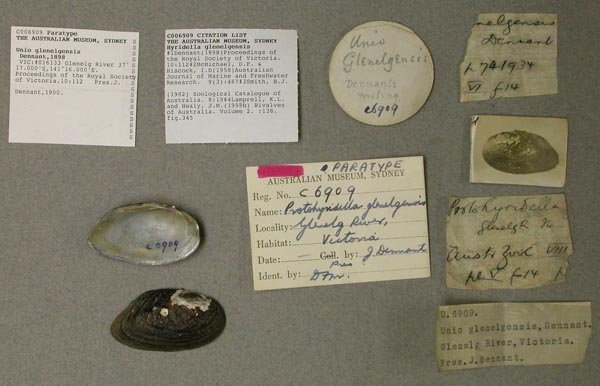 C006909 Paratype
THE AUSTRALIAN MUSEUM, SYDNEY
Unio glenelgensis
Dennant,1898
VIC:#016133 Glenelg River 37°S
17.000'E,141°16.000'E.
Proceedings of the Royal Society
of Victoria.10:112 Pres.J.
Dennant,1900.
C006909 CITATION LIST
THE AUSTRALIAN MUSEUM, SYDNEY
Hyridella glenelgensis
#(Dennant(1898)Proceedings of
the Royal Society of Victoria.
10:112#2McMichael, D.F. &
Hiscock, I.D(1958)Australian
Journal of Marine and Freshwater
Research. 9(3):467#3Smith, B.J.
(1992) Zoological Catalogue of
Australia. 8:1#4Lamprell, K.L.
and Healy, J.M.(1998b) Bivalves
of Australia. Volume 2. :138.
fig.345
Unio
Glenelgensis
Dennant's
C6909
nelgensis
Dennant
1934
VI f14
PARATYPE
AUSTRALIAN MUSEUM, SYDNEY
Reg. No. C 6909
Name: Protohyridella glenelgensis
Locality: Glenelg River,
Habitat: Victoria
Date: — Coll. by: J. Dennant
Pres
Ident. by:
C6909
Protohyridella
glenelg
Aust Zool VIII
pl V f14
C.6909.
Unio glenelgensis, Dennant.
Glenelg River, Victoria.
Pres. J. Dennant.